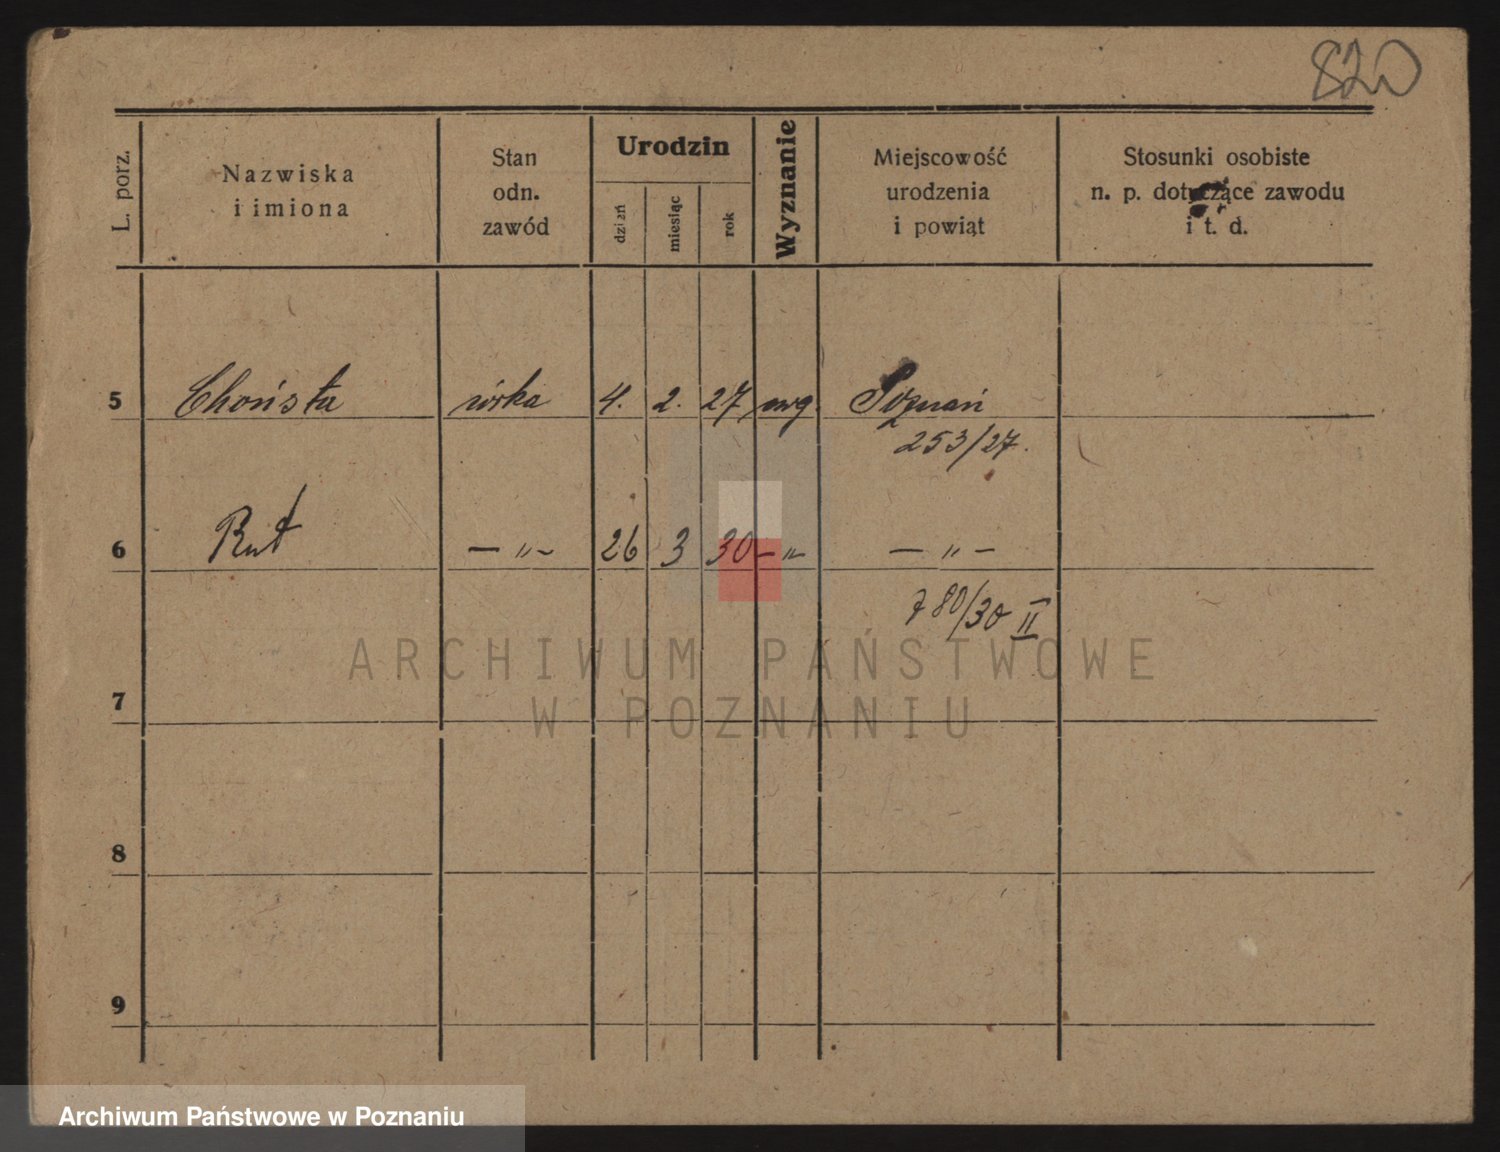 820
L. porz.
Nazwiska
i imiona
Stan
odn.
zawód
Urodzin
dzień
miesiąc
rok
Wyznanie
Miejscowość
urodzenia
i powiąt
Stosunki osobiste
n. p. dotyczące zawodu
i t. d.
5 córka 4. 2. 27 Poznań
253/27.
6 Rut — „ — 26 3 30 — „ — — „ —
780/30 II
ARCHIWUM PAŃSTWOWE
W POZNANIU
7
8
9
Archiwum Państwowe w Poznaniu